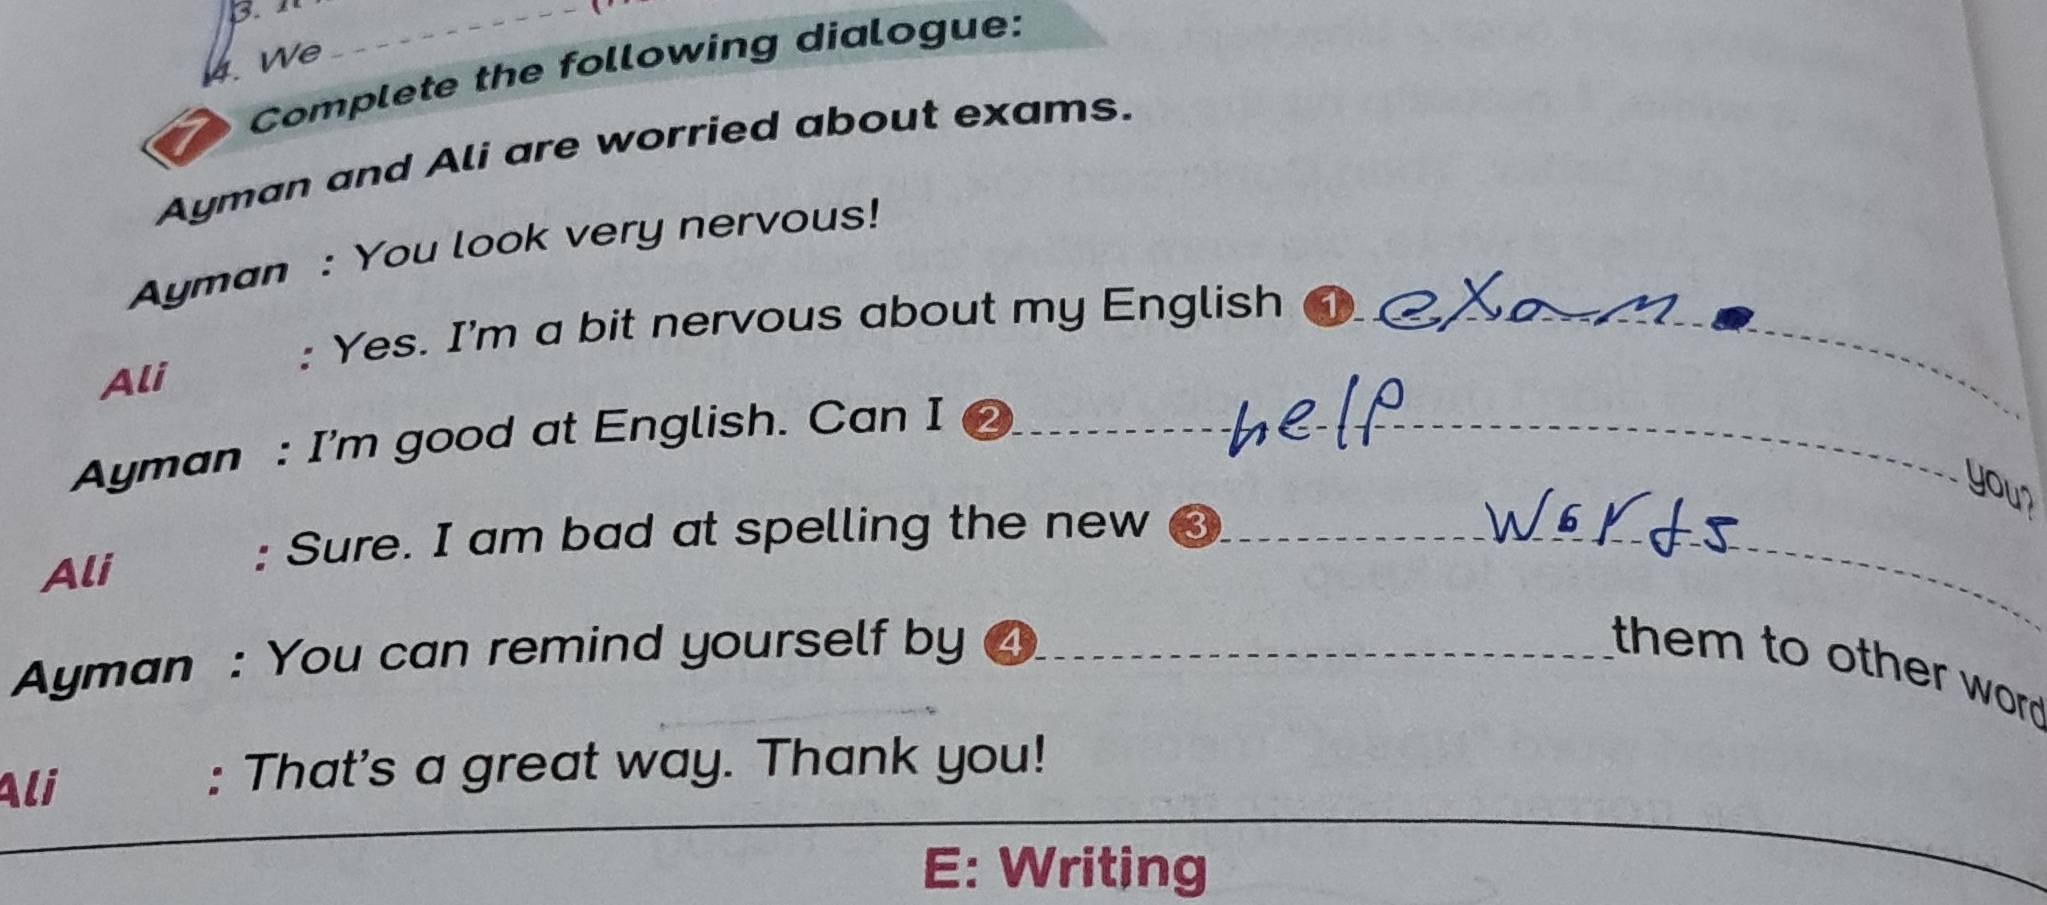 3.
4. We
7 Complete the following dialogue:
Ayman and Ali are worried about exams.
Ayman : You look very nervous!
Ali : Yes. I'm a bit nervous about my English 1 exam.
Ayman : I'm good at English. Can I 2 help you?
Ali : Sure. I am bad at spelling the new 3 words
Ayman : You can remind yourself by 4 them to other word
Ali : That's a great way. Thank you!
E: Writing